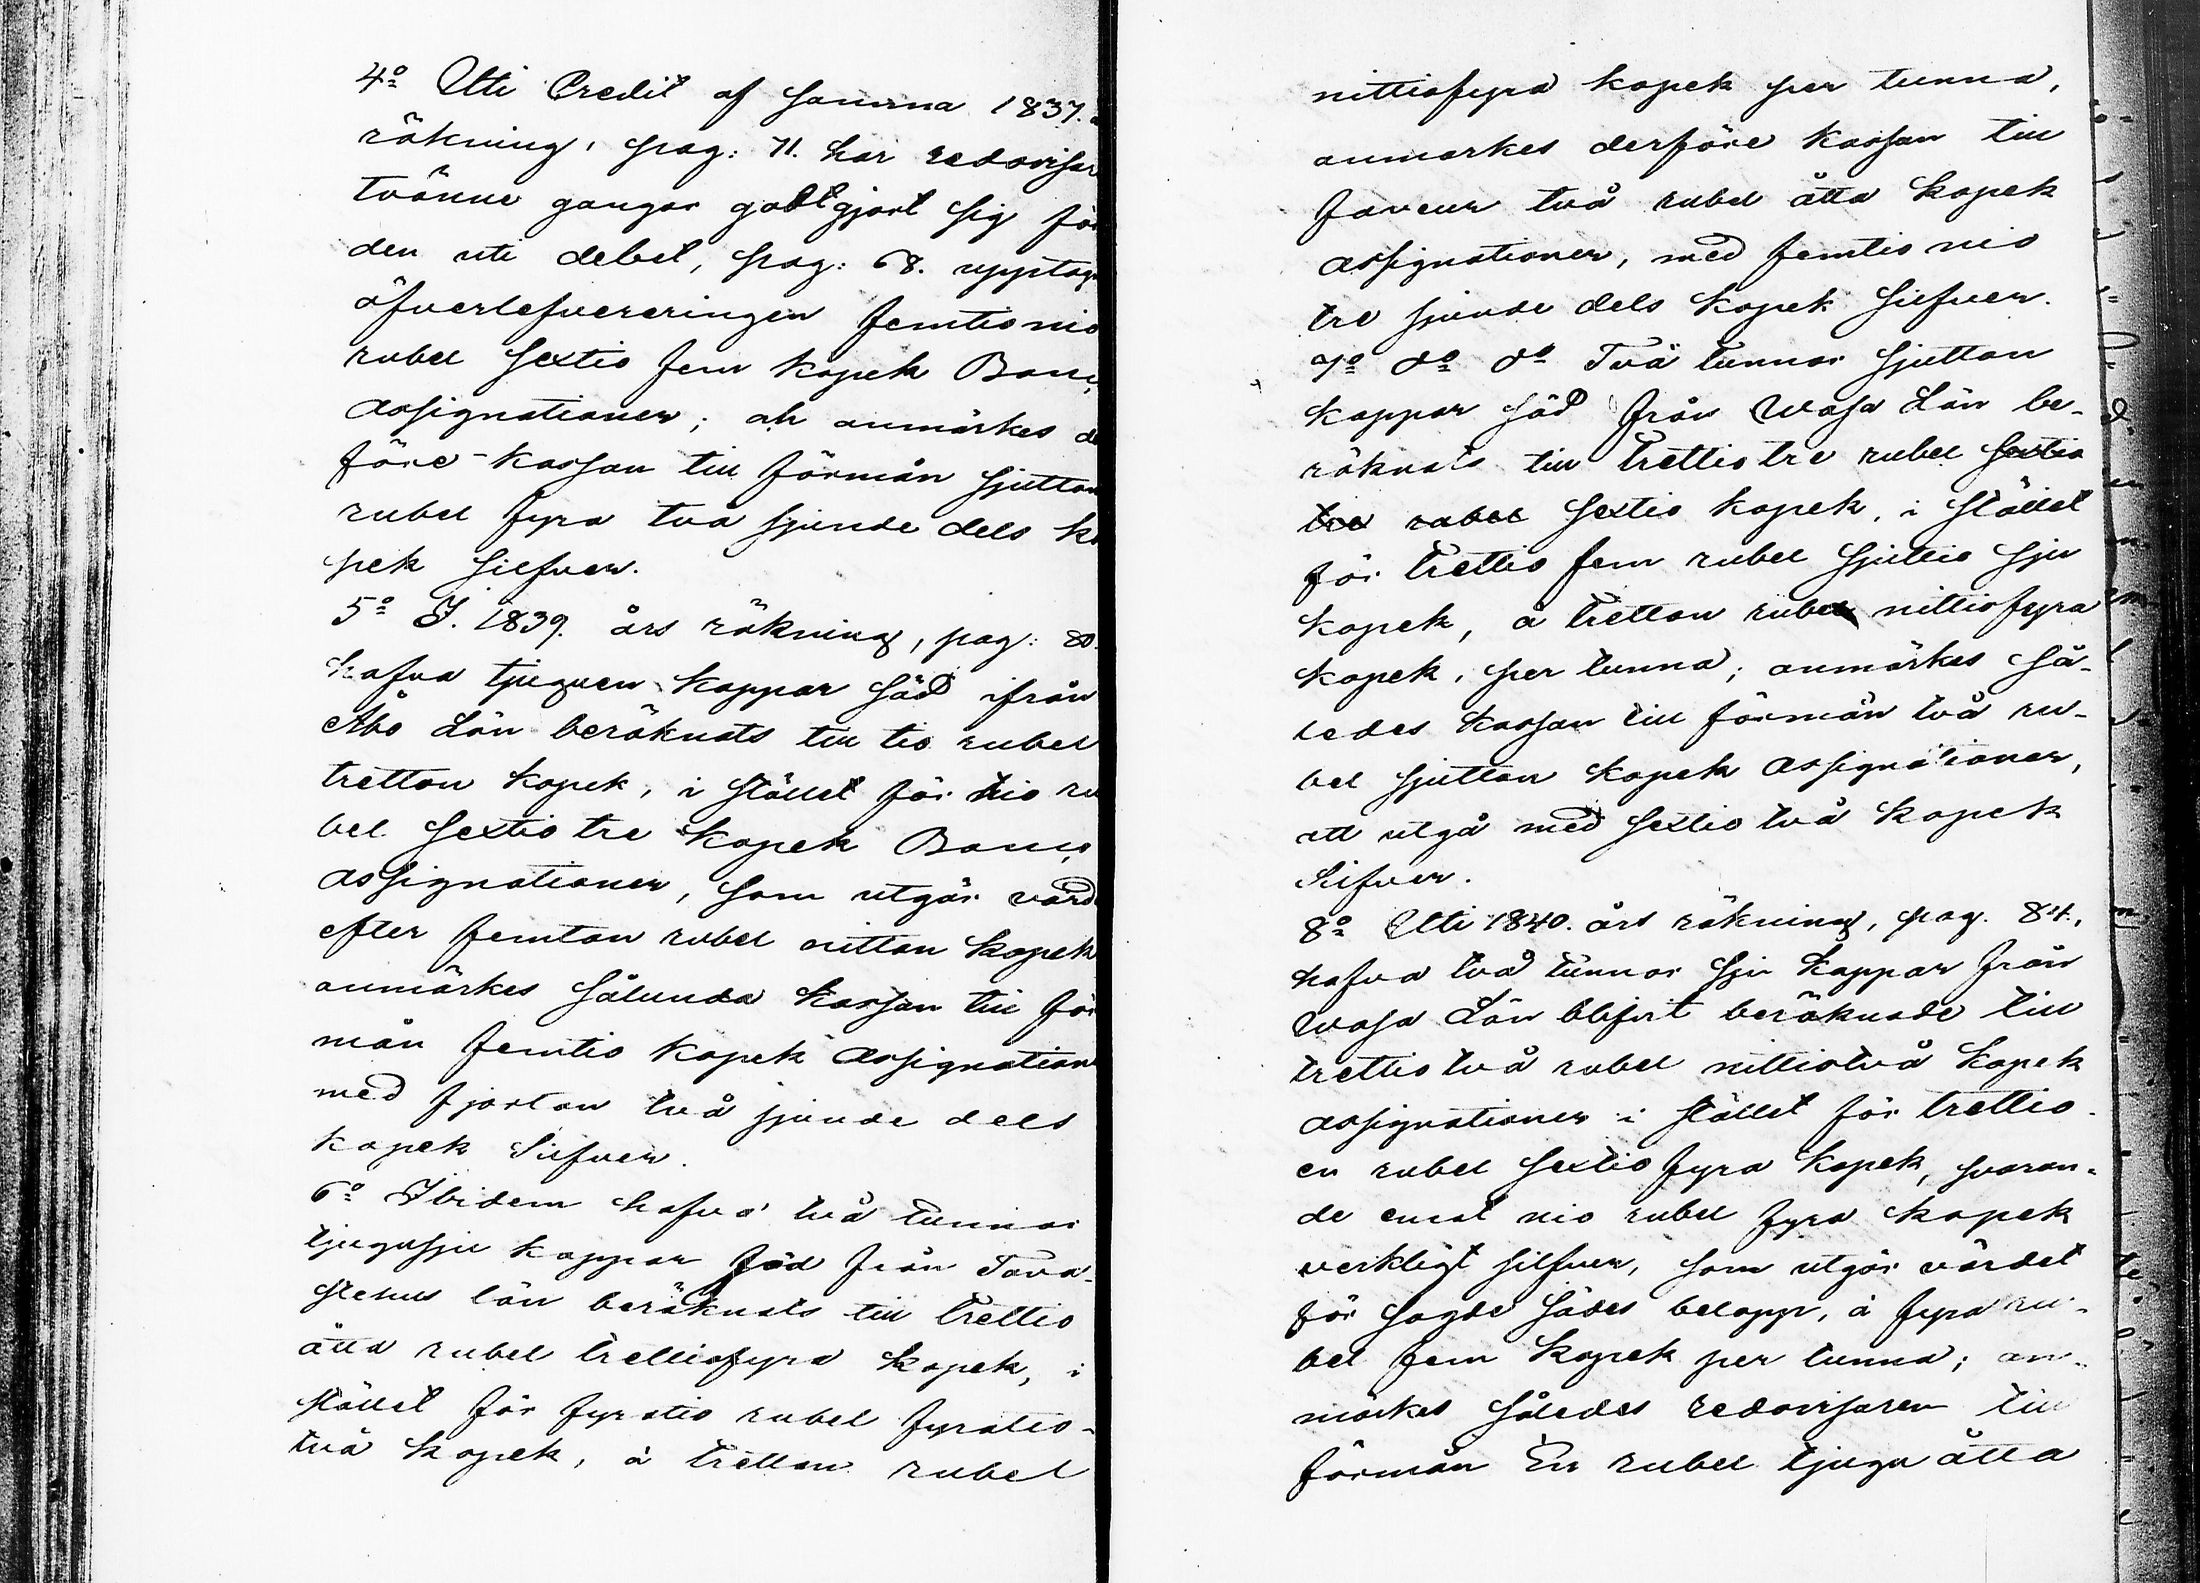 4º Uti Credit af samma 1837.
räkning, pag: 71. har redovisar
tvänne gangor godtgjort sig för
den uti debet, pag: 68. upptag
öfverlefvereringen femtio nio
rubel sextio fem kopek Banco
assignationer; ah anmärkes de
före kassan till förmån sjutton
rubel fyra två sjunde dels ko
pek silfver.
5º I. 1839. års räkning, pag: 80.
hafva tjuguen kappar säd ifrån
Åbo Län beräknats till tio rubel
tretton kopek, i stället för tio ru
bel sextio tre kopek Banco
assignationer, som utgör värd
efter femton rubel nitton kopek
anmärkes sålunda kassan till för
mån femtio kopek assignation
med fjorton två sjunde dels
kopek Silfver.
6º Ibidem hafva två tunnor
tjugusju kappar säd från Tava-
stehus län beräknats till trettio
åtta rubel trettiofyra kopek, i
stället för fyratio rubel fyratio-
två kopek, à tretton rubel
nittiofyra kopek per tunna,
anmarkes derföre kassan till
faveur två rubel åtta kopek
assignationer, med femtio nio
tre sjunde dels kopek silfver.
7º dº dº Två tunnor sjutton
kappar säd från Wasa Län be-
räknats till trettiotre rubel sextio
tre rubel sextio kopek, i stället
för trettio fem rubel sjuttio sju
kopek, à tretton rubel nittiofyra
kopek, per tunna; anmärkes så-
ledes kassan till förmån två ru-
bel sjutton kopek assignationer,
att utgå med sextio två kopek
Silfver.
8º Uti 1840. års räkning, pag. 84.,
hafva två tunnor sju kappar från
Wasa Län blifvit beräknade till
trettio två rubel nittiotvå kopek
assignationer i stället för trettio
en rubel sextio fyra kopek, svaran-
de emot nio rubel fyra kopek
verkligt silfver, som utgör värdet
för sagde sädes belopp, à fyra ru-
bel fem kopek per tunna; an-
märkes således redovisaren till
förmån En rubel tjugu åtta